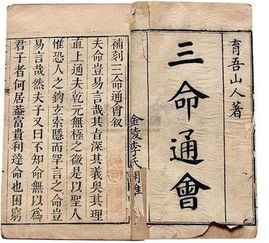 育吾山人著
三命通會
金陵李氏
補刻三命通會敘
夫命豈易言哉其旨深其義奧其理
直上通夫乾元無極之後是以聖人
惟恐人之鉤玄索隱而罕言之命豈
易言哉然夫子又曰不知命無以為
君子者何居蓋富貴利達命也困窮